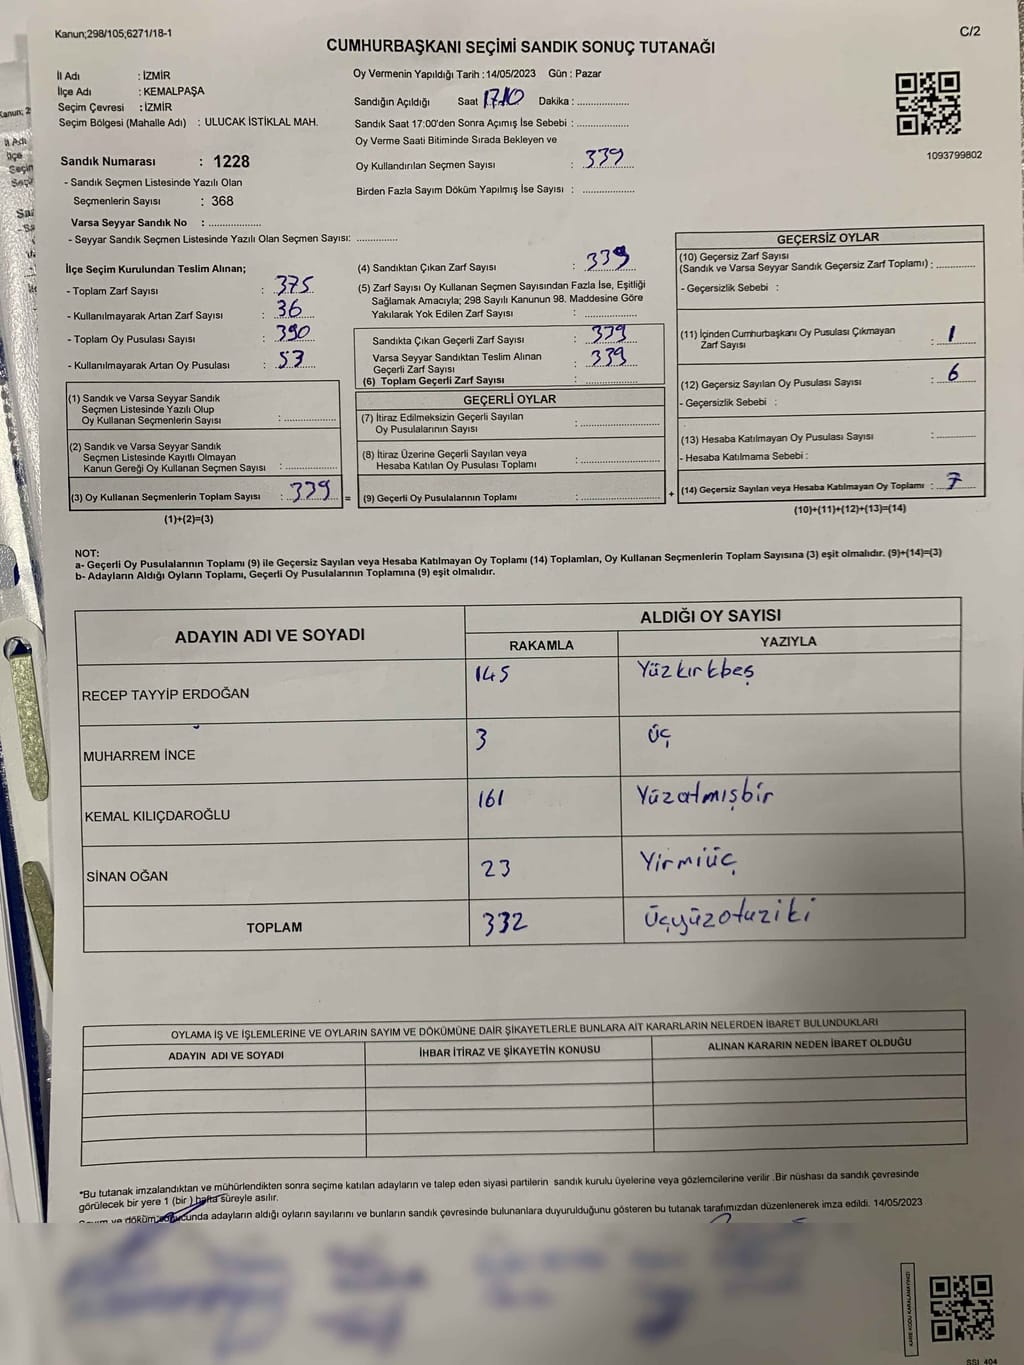 Kanun;298/105;6271/18-1
C/2
CUMHURBAŞKANI SEÇİMİ SANDIK SONUÇ TUTANAĞI
İl Adı : İZMİR
İlçe Adı : KEMALPAŞA
Seçim Çevresi : İZMİR
Seçim Bölgesi (Mahalle Adı) : ULUCAK İSTİKLAL MAH.
Sandık Numarası : 1228
- Sandık Seçmen Listesinde Yazılı Olan
Seçmenlerin Sayısı : 368
Varsa Seyyar Sandık No : ....................
- Seyyar Sandık Seçmen Listesinde Yazılı Olan Seçmen Sayısı: ...............
Oy Vermenin Yapıldığı Tarih : 14/05/2023 Gün : Pazar
Sandığın Açıldığı Saat 17.10 Dakika : ...................
Sandık Saat 17:00'den Sonra Açımış İse Sebebi : ...................
Oy Verme Saati Bitiminde Sırada Bekleyen ve
Oy Kullandırılan Seçmen Sayısı : 339
Birden Fazla Sayım Döküm Yapılmış İse Sayısı : ...................
1093799802
İlçe Seçim Kurulundan Teslim Alınan;
- Toplam Zarf Sayısı : 375
- Kullanılmayarak Artan Zarf Sayısı : 36
- Toplam Oy Pusulası Sayısı : 390
- Kullanılmayarak Artan Oy Pusulası : 53
(1) Sandık ve Varsa Seyyar Sandık
Seçmen Listesinde Yazılı Olup
Oy Kullanan Seçmenlerin Sayısı : ...................
(2) Sandık ve Varsa Seyyar Sandık
Seçmen Listesinde Kayıtlı Olmayan
Kanun Gereği Oy Kullanan Seçmen Sayısı : ...................
(3) Oy Kullanan Seçmenlerin Toplam Sayısı : 339 =
(1)+(2)=(3)
(4) Sandıktan Çıkan Zarf Sayısı : 339
(5) Zarf Sayısı Oy Kullanan Seçmen Sayısından Fazla İse, Eşitliği
Sağlamak Amacıyla; 298 Sayılı Kanunun 98. Maddesine Göre
Yakılarak Yok Edilen Zarf Sayısı : ...................
Sandıkta Çıkan Geçerli Zarf Sayısı : 339
Varsa Seyyar Sandıktan Teslim Alınan
Geçerli Zarf Sayısı : 339
(6) Toplam Geçerli Zarf Sayısı : ...................
GEÇERLİ OYLAR
(7) İtiraz Edilmeksizin Geçerli Sayılan
Oy Pusulalarının Sayısı : ...................
(8) İtiraz Üzerine Geçerli Sayılan veya
Hesaba Katılan Oy Pusulası Toplamı : ...................
(9) Geçerli Oy Pusulalarının Toplamı : ................... +
GEÇERSİZ OYLAR
(10) Geçersiz Zarf Sayısı
(Sandık ve Varsa Seyyar Sandık Geçersiz Zarf Toplamı) : ..............
- Geçersizlik Sebebi :
(11) İçinden Cumhurbaşkanı Oy Pusulası Çıkmayan
Zarf Sayısı : 1
(12) Geçersiz Sayılan Oy Pusulası Sayısı : 6
- Geçersizlik Sebebi :
(13) Hesaba Katılmayan Oy Pusulası Sayısı : ..............
- Hesaba Katılmama Sebebi :
(14) Geçersiz Sayılan veya Hesaba Katılmayan Oy Toplamı : 7
(10)+(11)+(12)+(13)=(14)
NOT:
a- Geçerli Oy Pusulalarının Toplamı (9) ile Geçersiz Sayılan veya Hesaba Katılmayan Oy Toplamı (14) Toplamları, Oy Kullanan Seçmenlerin Toplam Sayısına (3) eşit olmalıdır. (9)+(14)=(3)
b- Adayların Aldığı Oyların Toplamı, Geçerli Oy Pusulalarının Toplamına (9) eşit olmalıdır.
ADAYIN ADI VE SOYADI
ALDIĞI OY SAYISI
RAKAMLA YAZIYLA
RECEP TAYYİP ERDOĞAN 145 Yüzkırkbeş
MUHARREM İNCE 3 üç
KEMAL KILIÇDAROĞLU 161 Yüzatmışbir
SİNAN OĞAN 23 Yirmiüç
TOPLAM 332 Üçyüzotuziki
OYLAMA İŞ VE İŞLEMLERİNE VE OYLARIN SAYIM VE DÖKÜMÜNE DAİR ŞİKAYETLERLE BUNLARA AİT KARARLARIN NELERDEN İBARET BULUNDUKLARI
ADAYIN ADI VE SOYADI İHBAR İTİRAZ VE ŞİKAYETİN KONUSU ALINAN KARARIN NEDEN İBARET OLDUĞU
*Bu tutanak imzalandıktan ve mühürlendikten sonra seçime katılan adayların ve talep eden siyasi partilerin sandık kurulu üyelerine veya gözlemcilerine verilir .Bir nüshası da sandık çevresinde
görülecek bir yere 1 (bir ) hafta süreyle asılır.
Sayım ve döküm sonucunda adayların aldığı oyların sayılarını ve bunların sandık çevresinde bulunanlara duyurulduğunu gösteren bu tutanak tarafımızdan düzenlenerek imza edildi. 14/05/2023
KARE KODU KARALAMAYINIZ!
SSI_404